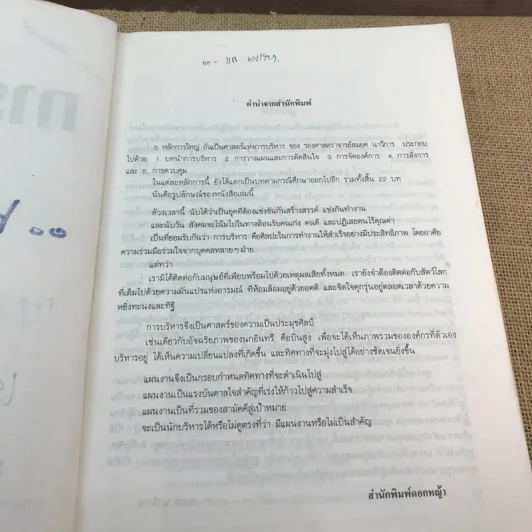 การ
คำนำจากสำนักพิมพ์
5 หลักการใหญ่ อันเป็นศาสตร์แห่งการบริหาร ของ รองศาสตราจารย์สมยศ นาวีการ ประกอบ
ไปด้วย 1. บทนำการบริหาร 2. การวางแผนและการตัดสินใจ 3. การจัดองค์การ 4. การสั่งการ
และ 5. การควบคุม
ในแต่ละหลักการนี้ ยังได้แตกเป็นบทตามกรณีศึกษาออกไปอีก รวมทั้งสิ้น 22 บท
นั่นคือรูปลักษณ์ของหนังสือเล่มนี้
ห้วงเวลานี้ นับได้ว่าเป็นยุคที่ต้องแข่งขันกันสร้างสรรค์ แข่งกันทำงาน
และนับวัน สังคมจะโน้มไปในทางต้อนรับคนเก่ง คนดี และปฏิเสธคนไร้คุณค่า
เป็นที่ยอมรับกันว่า การบริหาร คือศิลปะในการทำงานให้สำเร็จอย่างมีประสิทธิภาพ โดยอาศัย
ความร่วมมือร่วมใจจากบุคคลหลายๆ ฝ่าย
แต่ทว่า
เรามิได้ติดต่อกับมนุษย์ที่เพียบพร้อมไปด้วยเหตุผลเสียทั้งหมด เรายังจำต้องติดต่อกับสัตว์โลก
ที่เต็มไปด้วยความผันแปรแห่งอารมณ์ ที่ห้อมล้อมอยู่ด้วยอคติ และจิตใจคุกรุ่นอยู่ตลอดเวลาด้วยความ
หยิ่งทะนงและทิฐิ
การบริหารจึงเป็นศาสตร์ของความเป็นประมุขศิลป์
เช่นเดียวกับอัจฉริยภาพของนกอินทรี คือบินสูง เพื่อจะได้เห็นภาพรวมขององค์กรที่ตัวเอง
บริหารอยู่ ได้เห็นความเปลี่ยนแปลงที่เกิดขึ้น และทิศทางที่จะมุ่งไปสู่ได้อย่างชัดเจนยิ่งขึ้น
แผนงานจึงเป็นกรอบกำหนดทิศทางที่จะดำเนินไปสู่
แผนงานเป็นแรงบันดาลใจสำคัญที่เร่งให้ก้าวไปสู่ความสำเร็จ
แผนงานเป็นที่รวมของสามัคคีสู่เป้าหมาย
จะเป็นนักบริหารได้หรือไม่ดูตรงที่ว่า มีแผนงานหรือไม่เป็นสำคัญ
สำนักพิมพ์ดอกหญ้า